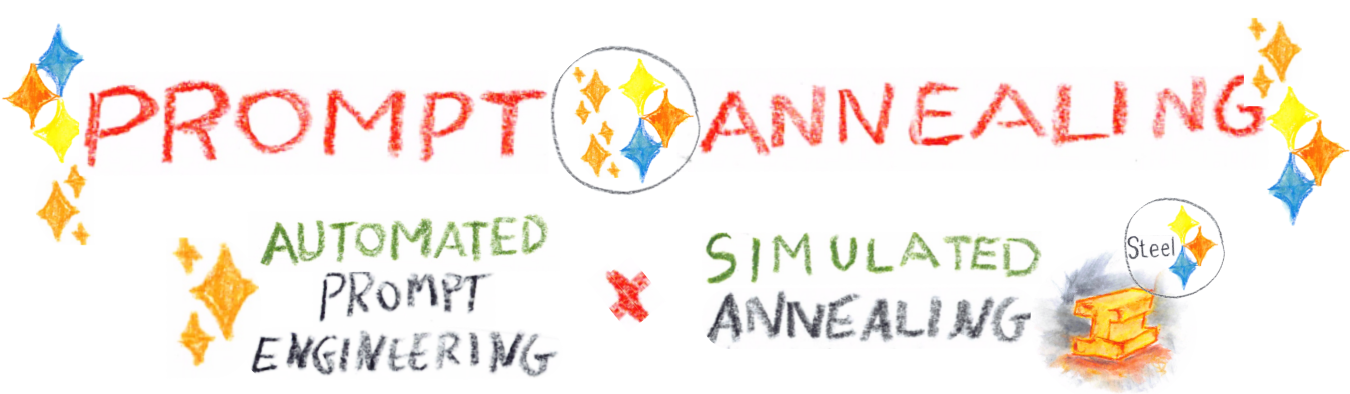 PROMPT ANNEALING
AUTOMATED
PROMPT
ENGINEERING
X
SIMULATED
ANNEALING
Steel